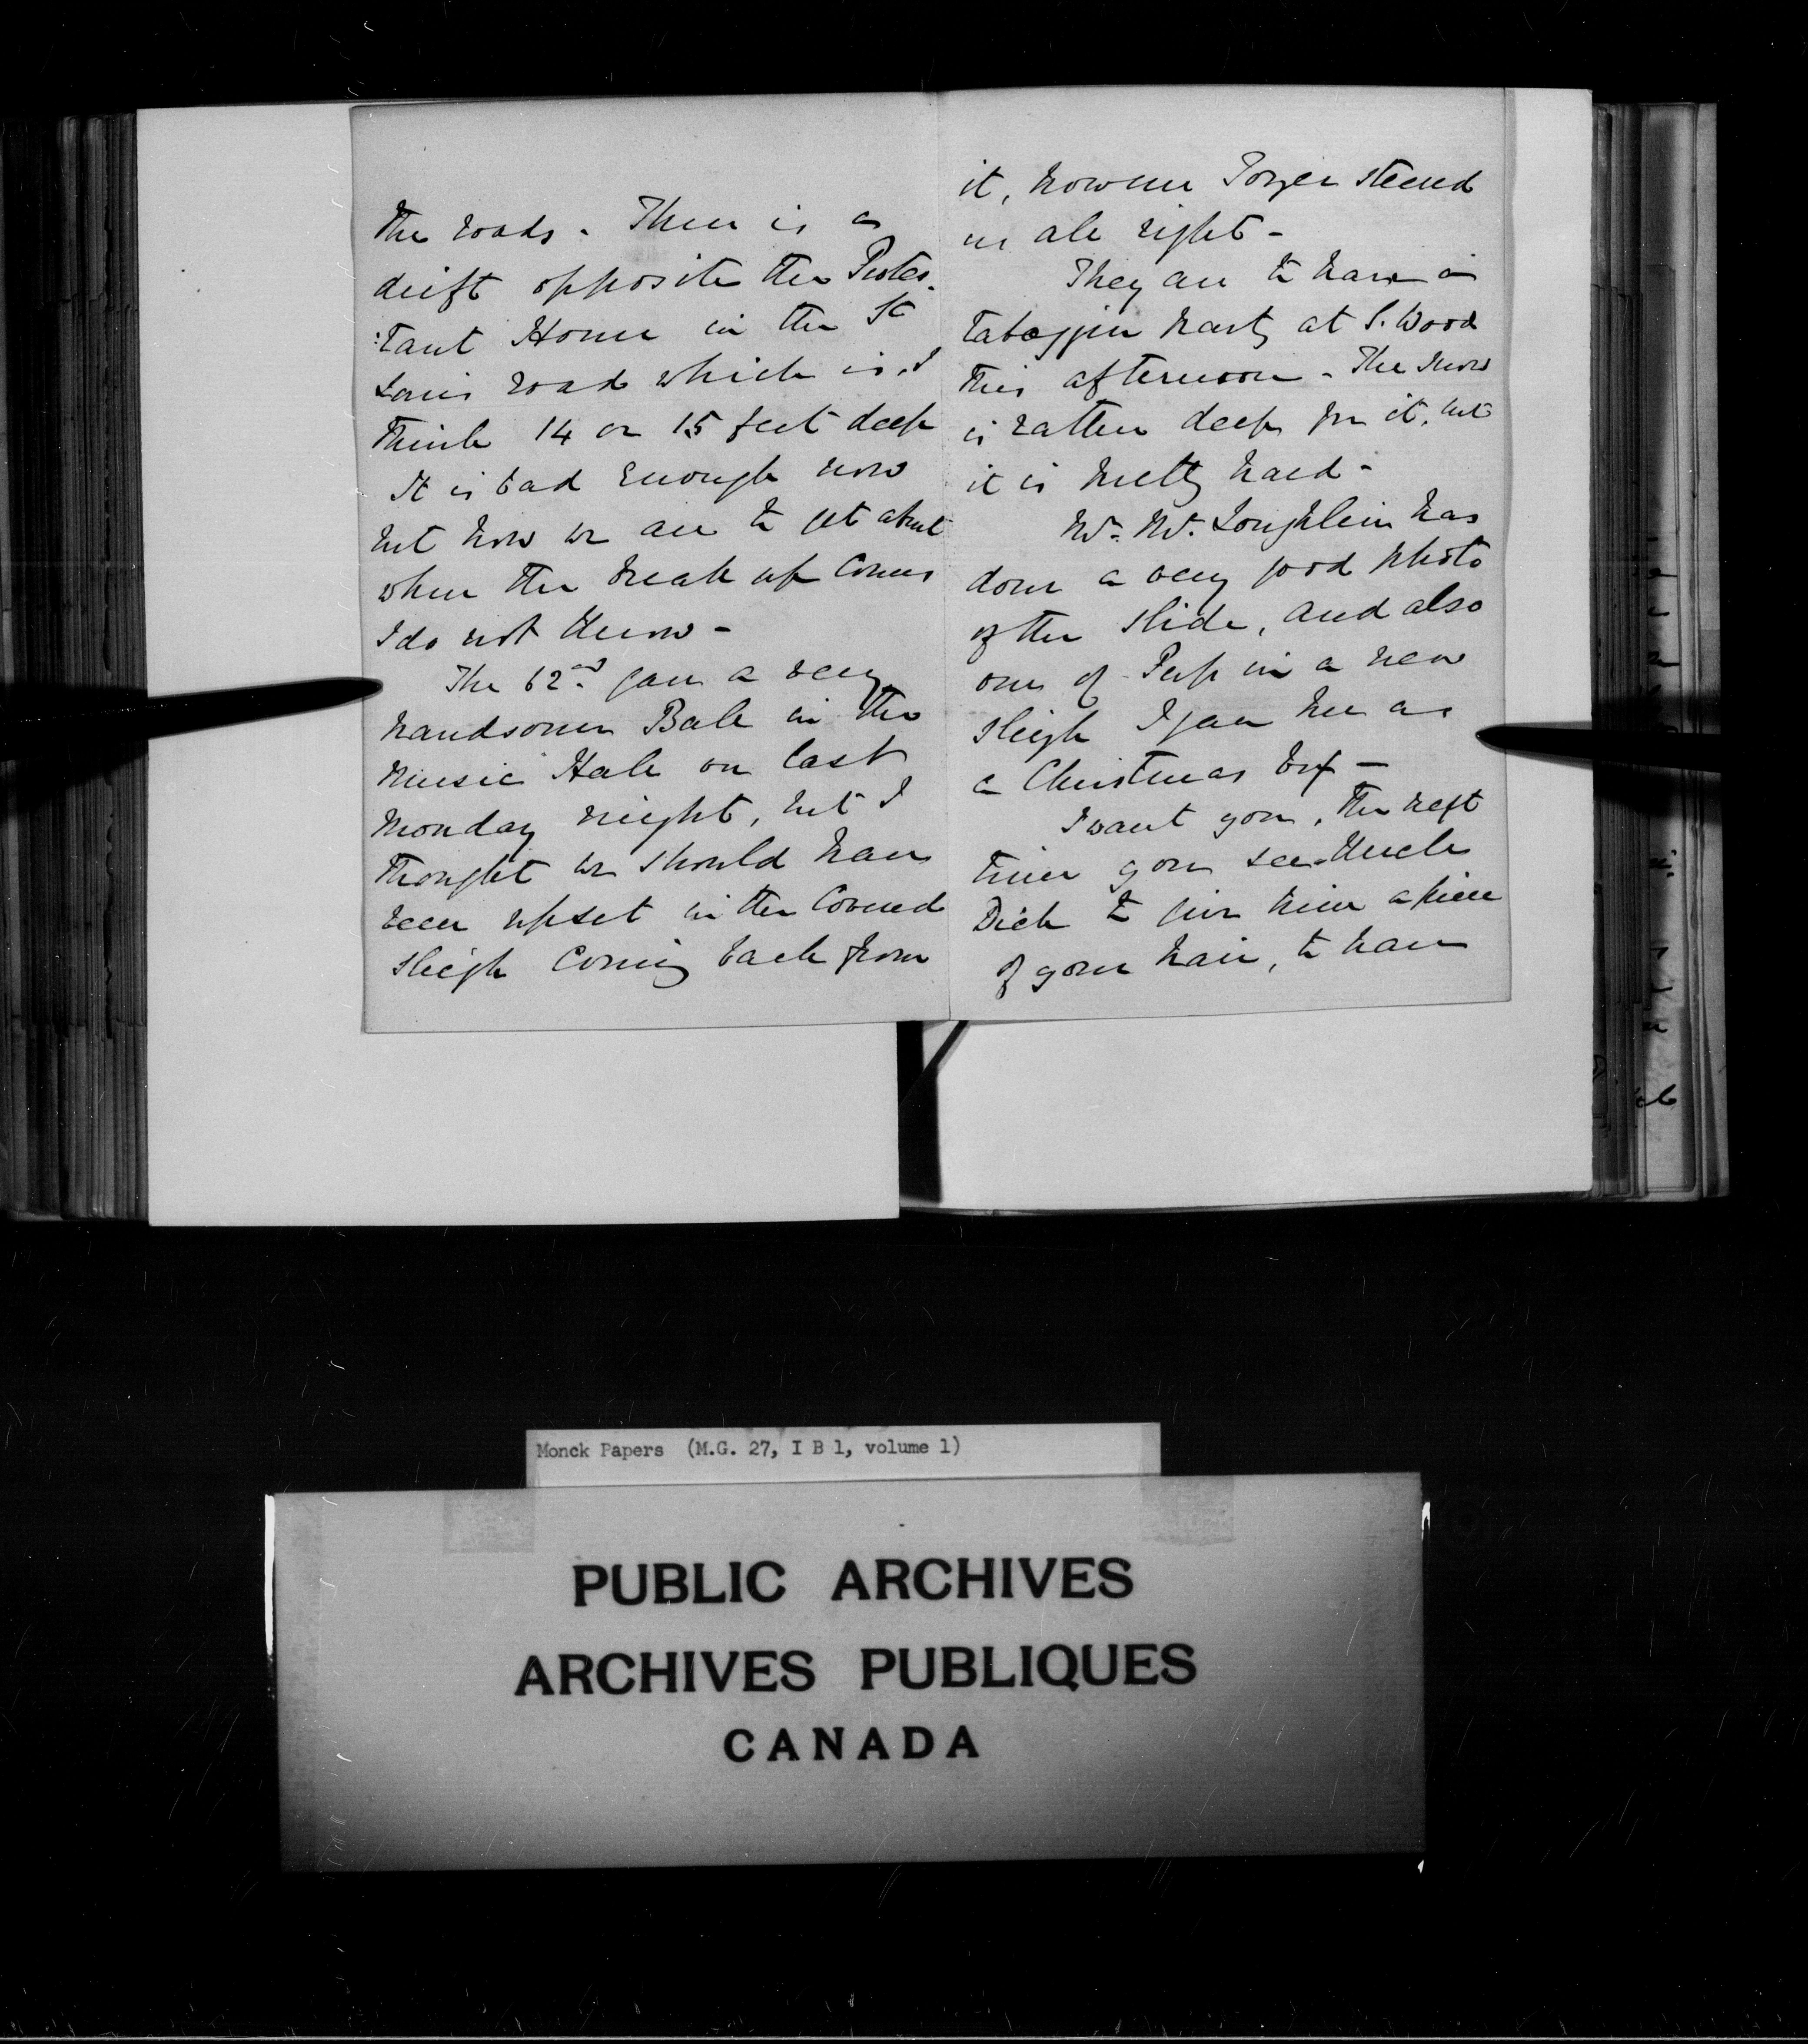 the roads. There is a
drift opposite the Protes-
:tant Home in the St
Louis road which is, I
think 14 or 15 feet deep
It is bad enough now
but how we are to get about
when the break up comes
I do not know -
The 62nd gave a very
handsome Ball in the
Music Hall on last
Monday night, but I
thought we should have
been upset in the covered
sleigh coming back from
it, however Tozer steered
us all right -
They are to have a
Taboggin party at S. Wood
this afternoon - The snow
is rather deep for it, but
it is pretty hard -
Mr. McLoughlin has
done a very good photo
of the slide, and also
one of in a new
sleigh I gave her as
a Christmas Box -
I want you, the next
time you see Uncle
Dick to give him a piece
of your hair, to have
Monck Papers (M.G. 27, I B 1, volume 1)
PUBLIC ARCHIVES
ARCHIVES PUBLIQUES
CANADA